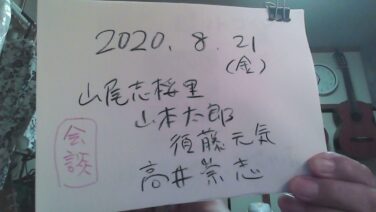 2020.8.21
(金)
山尾志桜里
山本太郎
須藤元気
高井崇志
会談